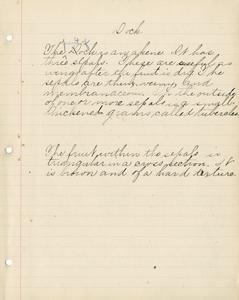 Dock.
The Dock is an akene. It has
three sepals. These are useful as
wings after the fruit is dry. The
sepals are then veiny and
membranaceous. On the outside
of one or more sepals is a single
thickened grain, called tubercles.
The fruit within the sepals is
triangular in a cross section. It
is brown and of a hard texture